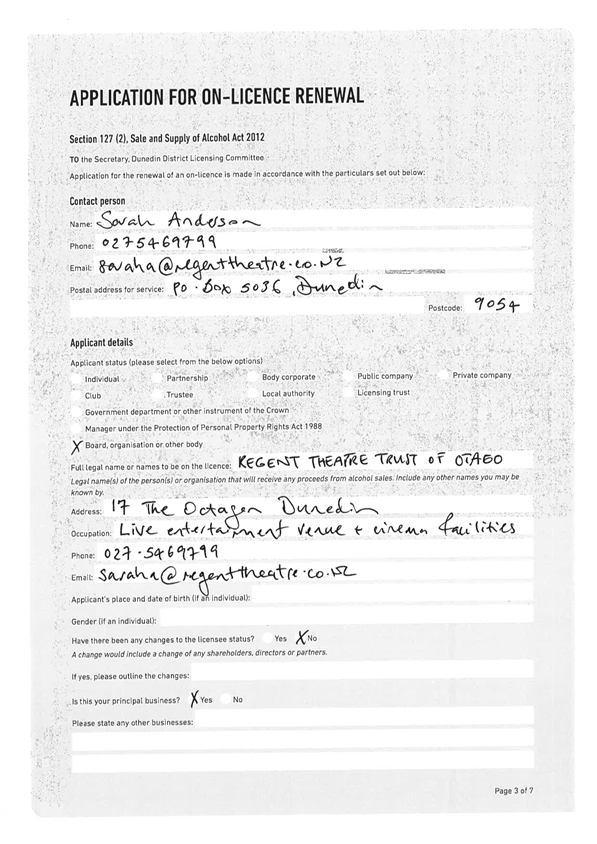 APPLICATION FOR ON-LICENCE RENEWAL
Section 127 (2), Sale and Supply of Alcohol Act 2012
TO the Secretary, Dunedin District Licensing Committee
Application for the renewal of an on-licence is made in accordance with the particulars set out below:
Contact person
Name: Sarah Anderson
Phone: 0275469799
Email: saraha@regenttheatre.co.NZ
Postal address for service: PO. Box 5036, Dunedin
Postcode: 9054
Applicant details
Applicant status (please select from the below options)
Individual Partnership Body corporate Public company Private company
Club Trustee Local authority Licensing trust
Government department or other instrument of the Crown
Manager under the Protection of Personal Property Rights Act 1988
X Board, organisation or other body
Full legal name or names to be on the licence: REGENT THEATRE TRUST OF OTAGO
Legal name(s) of the person(s) or organisation that will receive any proceeds from alcohol sales. Include any other names you may be
known by.
Address: 17 The Octagon Dunedin
Occupation: Live entertainment venue + cinema facilities
Phone: 027.5469799
Email: saraha@regenttheatre.co.NZ
Applicant's place and date of birth (if an individual):
Gender (if an individual):
Have there been any changes to the licensee status? Yes X No
A change would include a change of any shareholders, directors or partners.
If yes, please outline the changes:
Is this your principal business? X Yes No
Please state any other businesses:
Page 3 of 7